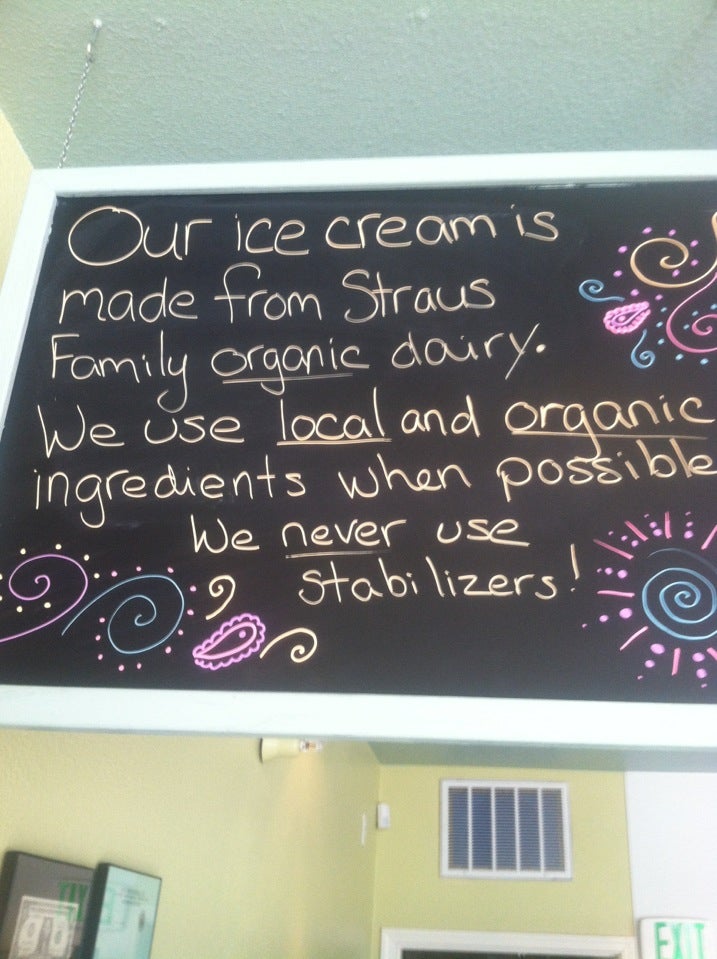 Our ice cream is
made from Straus
Family organic dairy.
We use local and organic
ingredients when possible
We never use
stabilizers!
EXIT